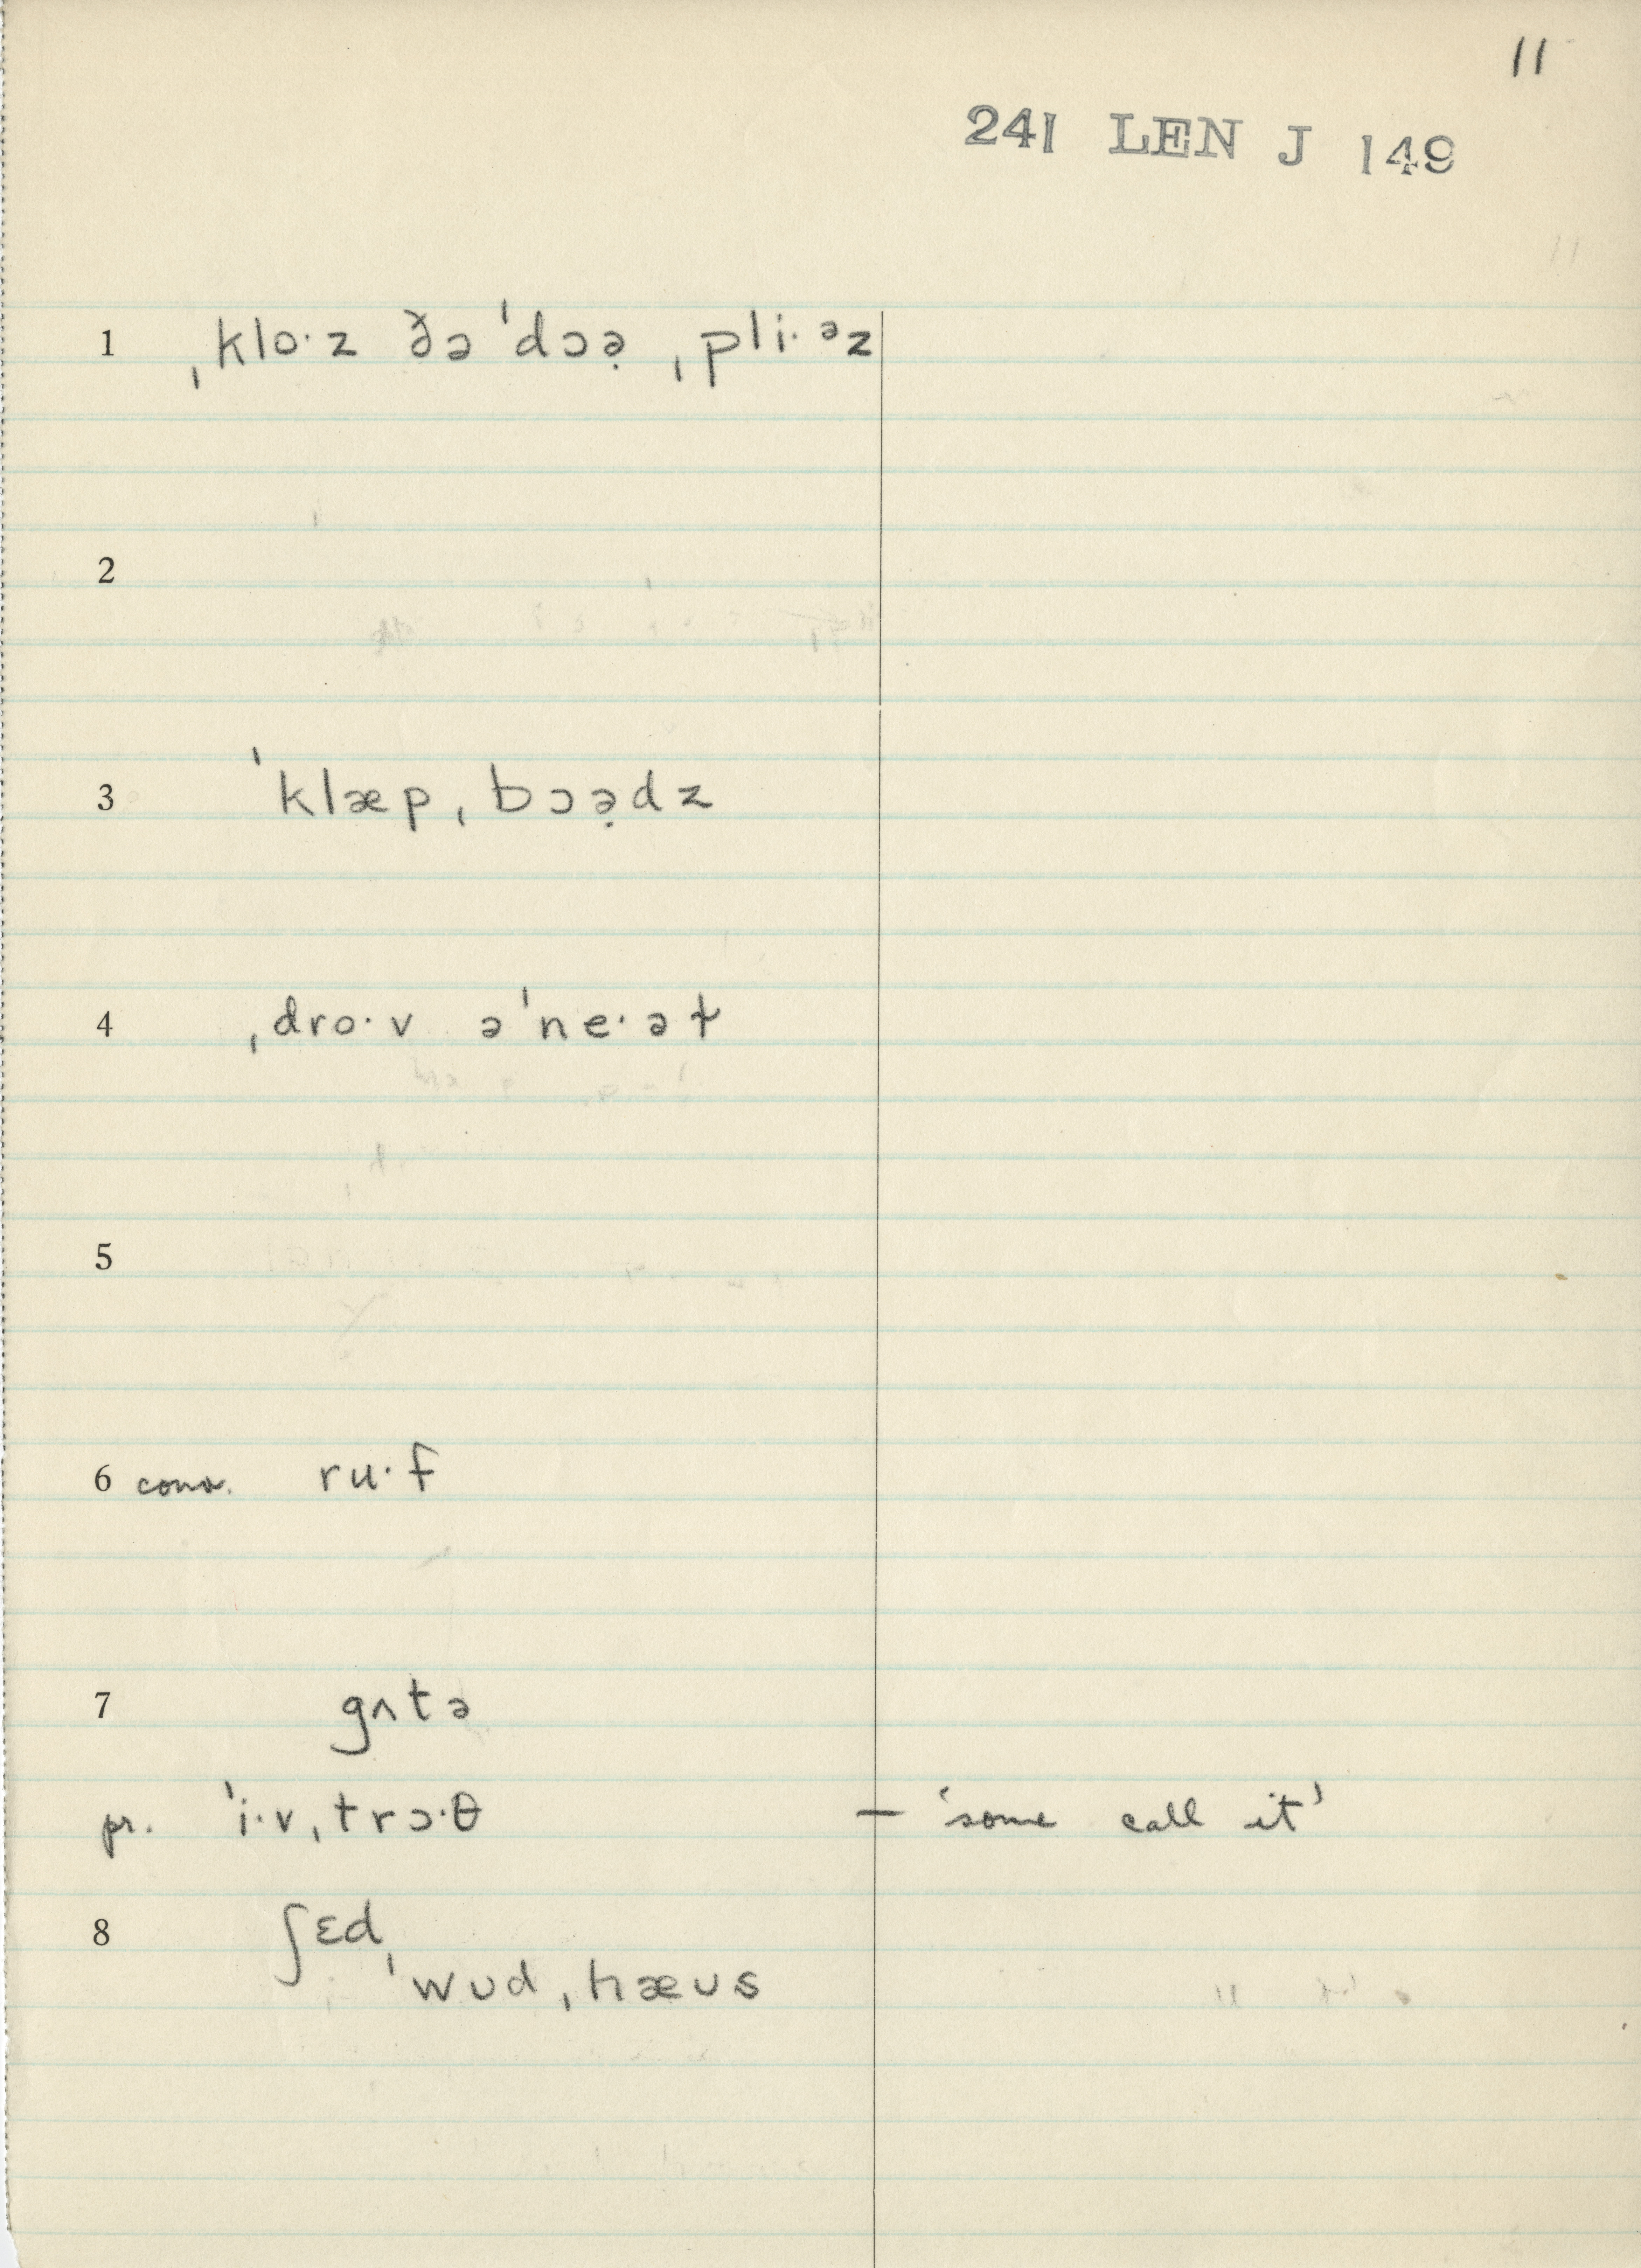 11
241 LEN J 149
1 ˌkloˑz ðə ˈdɔə̣ ˌpliˑᵊz
2
3 ˈklæpˌbɔə̣dz
4 ˌdroˑv əˈneˑəɫ
5
6 conv. ruˑf
7 gʌtə
pr. ˈiˑvˌtrɔˑθ — 'some call it'
8 ʃɛd
ˈwʊdˌhæʊs